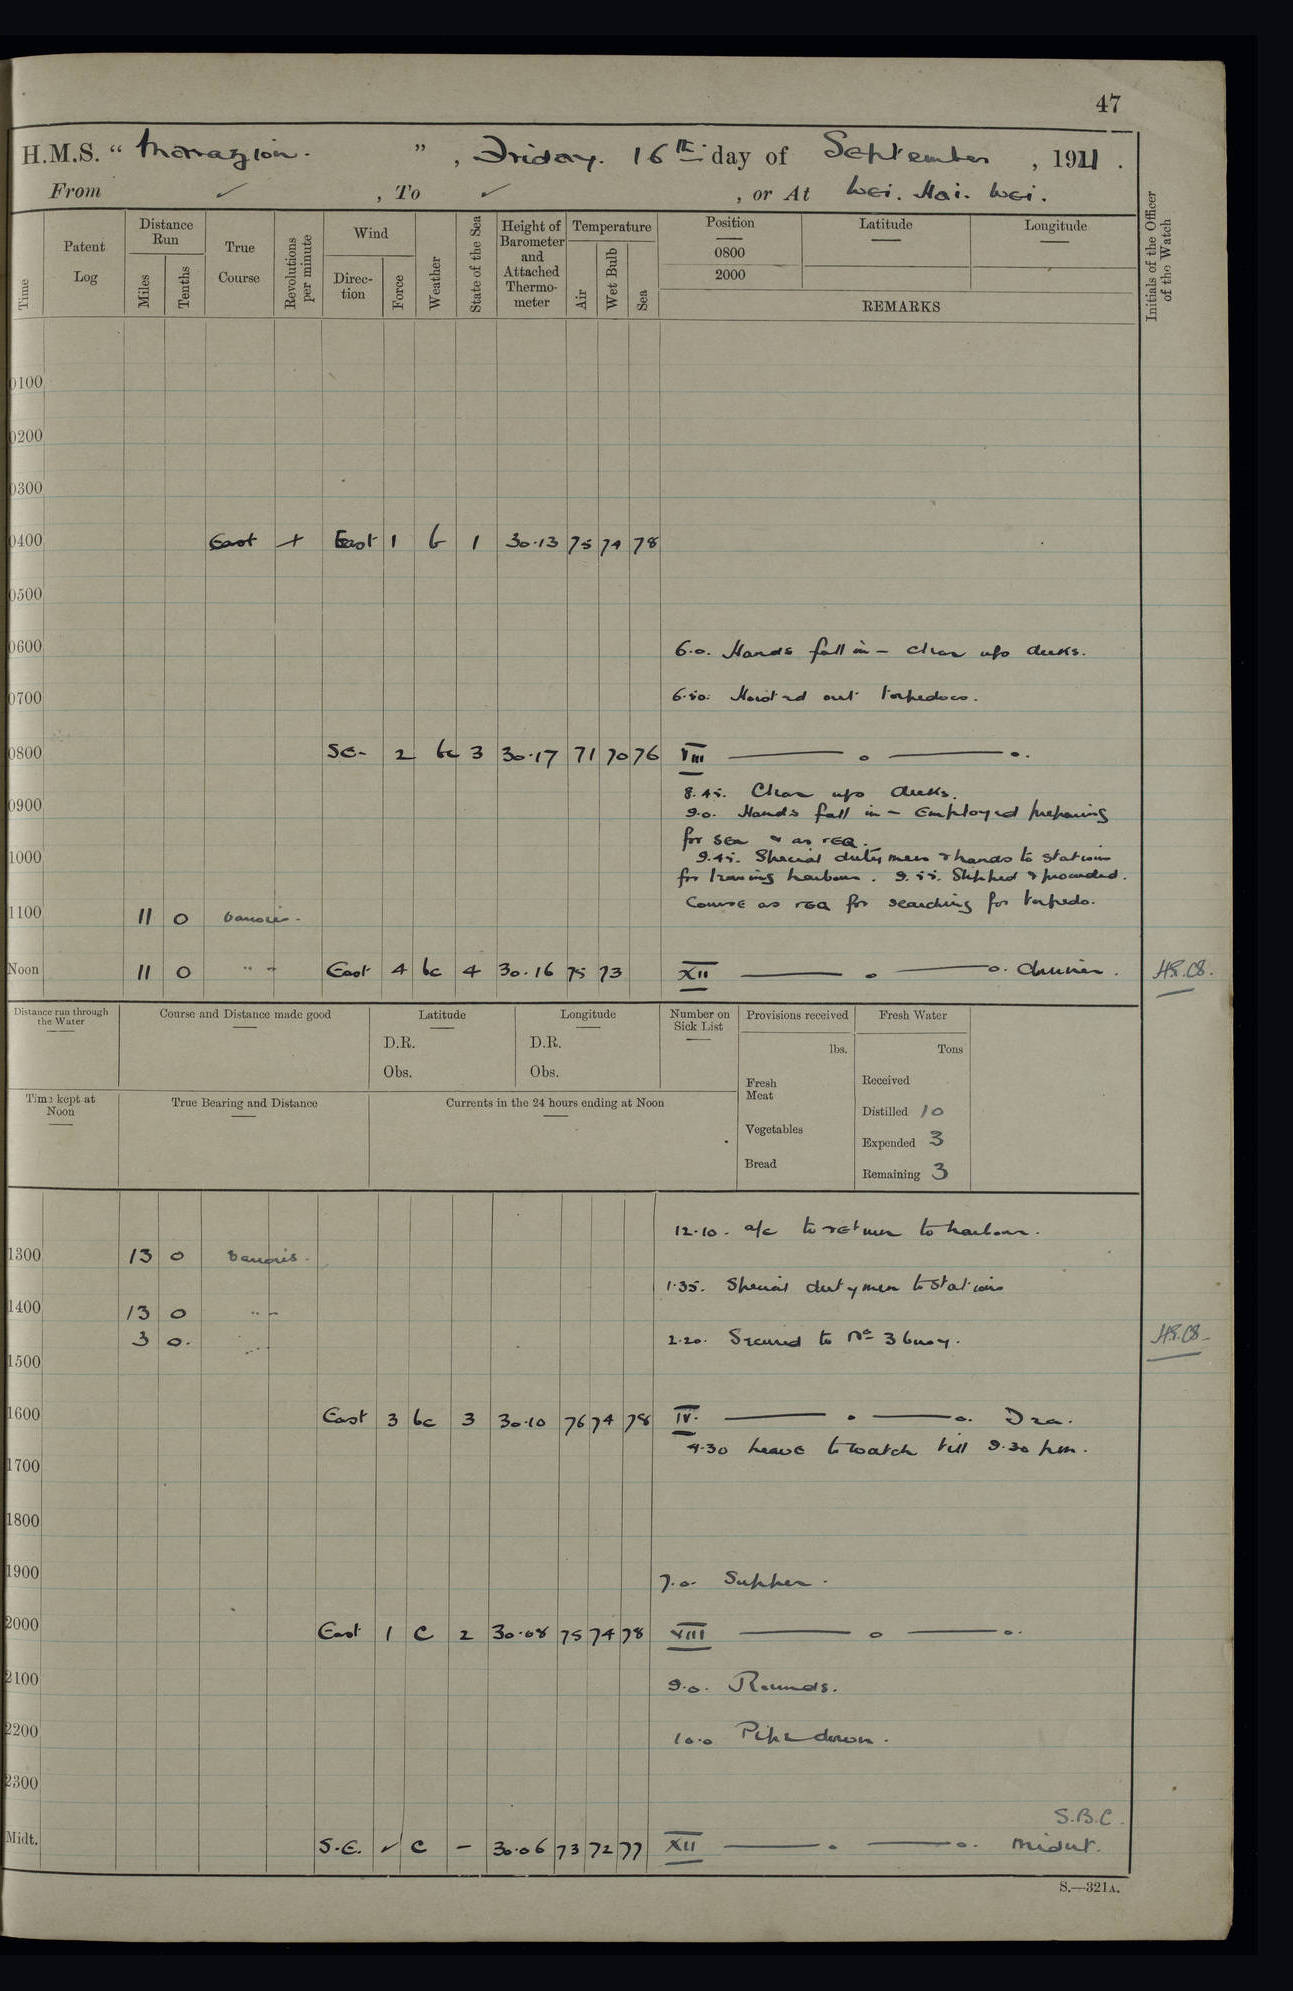 47
H.M.S. "Marazion." , Friday. 16th day of September , 1921.
From ✓ , To ✓ , or At Wei. Hai. Wei.
Time
Patent Log
Distance Run
Miles Tenths
True Course
Revolutions per minute
Wind
Direction Force
Weather
State of the Sea
Height of Barometer and Attached Thermometer
Temperature
Air Wet Bulb Sea
Position Latitude Longitude
0800
2000
REMARKS
Initials of the Officer of the Watch
0100
0200
0300
0400 East East 1 b 1 30.13 75 74 78
0500
0600 6.0. Hands fall in - Clear up decks.
0700 6.50. Hoisted out torpedoes.
0800 SE- 2 bc 3 30.17 71 70 76 VIII
8.45. Clear up decks.
0900 9.0. Hands fall in - Employed preparing
for sea & as req.
1000 9.45. Special duty men & hands to stations
for leaving harbour. 9.55. Slipped & proceeded.
Course as req for searching for torpedo.
1100 11 0 various.
Noon 11 0 " " East 4 bc 4 30.16 75 73 XII Dinner.
Distance run through the Water
Course and Distance made good
Latitude
D.R.
Obs.
Longitude
D.R.
Obs.
Number on Sick List
Provisions received
lbs.
Fresh Meat
Vegetables
Bread
Fresh Water
Tons
Received
Distilled 10
Expended 3
Remaining 3
Time kept at Noon
True Bearing and Distance
Currents in the 24 hours ending at Noon
12.10. a/c to return to harbour.
1300 13 0 various.
1.35. Special duty men to stations
1400 13 0 " "
3 0. 2.20. Secured to No 3 buoy.
1500
1600 East 3 bc 3 30.10 76 74 78 IV. Tea.
4.30 leave to watch till 9.30 pm.
1700
1800
1900 7.0. Supper.
2000 East 1 c 2 30.08 75 74 78 VIII
2100 9.0. Rounds.
2200 10.0 Pipe down.
2300
S.B.C.
Midt. S.E. ✓ c - 30.06 73 72 77 XII Midnt.
S.—321A.